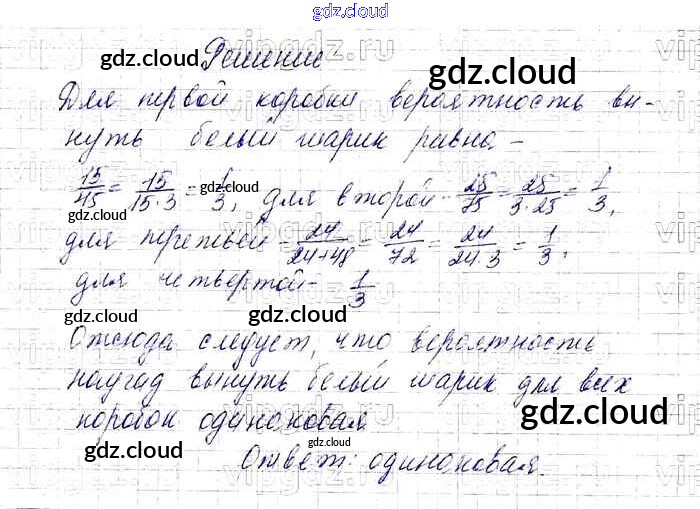 gdz.cloud
Решение
Для первой коробки вероятность вы-
нуть белый шарик равна -
15/45 = 15/15·3 = 1/3, для второй - 25/75 = 25/3·25 = 1/3,
для третьей - 24/24+48 = 24/72 = 24/24·3 = 1/3,
для четвертой - 1/3
Отсюда следует, что вероятность
наугад вынуть белый шарик для всех
коробок одинаковая
Ответ: одинаковая.
gdz.cloud
gdz.cloud
gdz.cloud
gdz.cloud
gdz.cloud
gdz.cloud
gdz.cloud
gdz.cloud
gdz.cloud
gdz.cloud